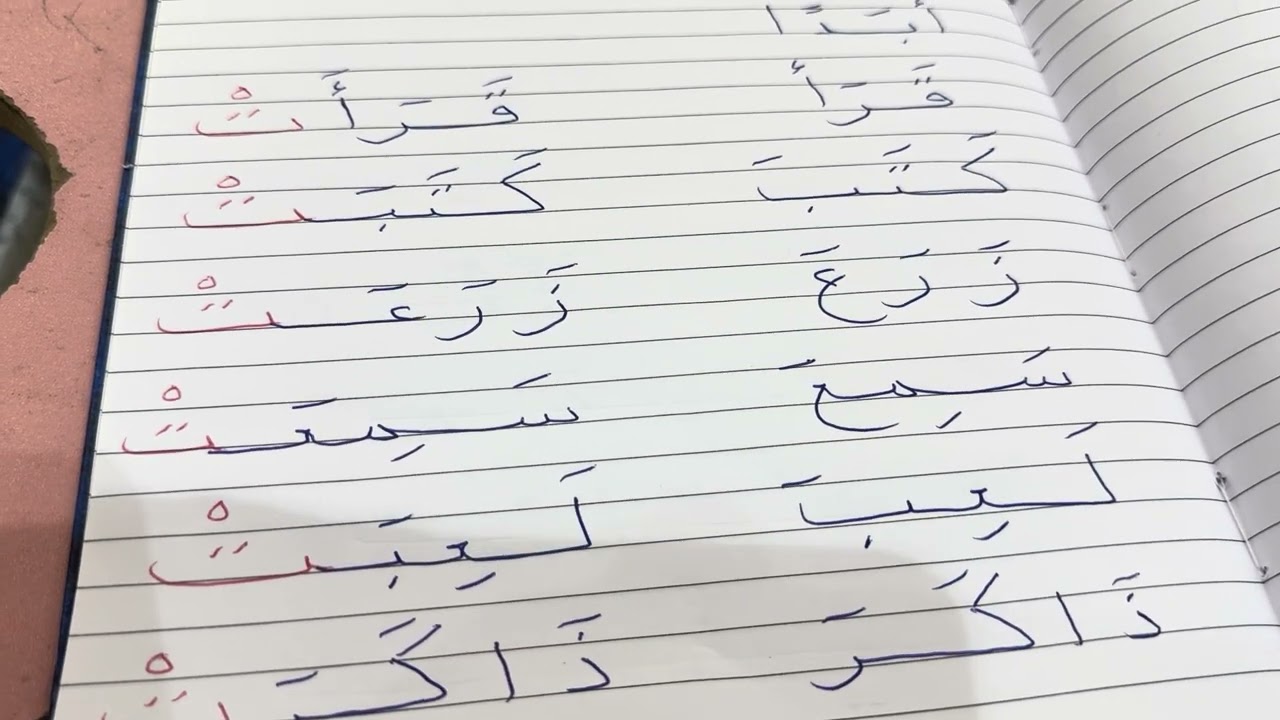 أَبَدًا
قَرَأَ قَرَأَتْ
كَتَبَ كَتَبَتْ
زَرَعَ زَرَعَتْ
سَمِعَ سَمِعَتْ
لَعِبَ لَعِبَتْ
ذَاكَرَ ذَاكَرَتْ